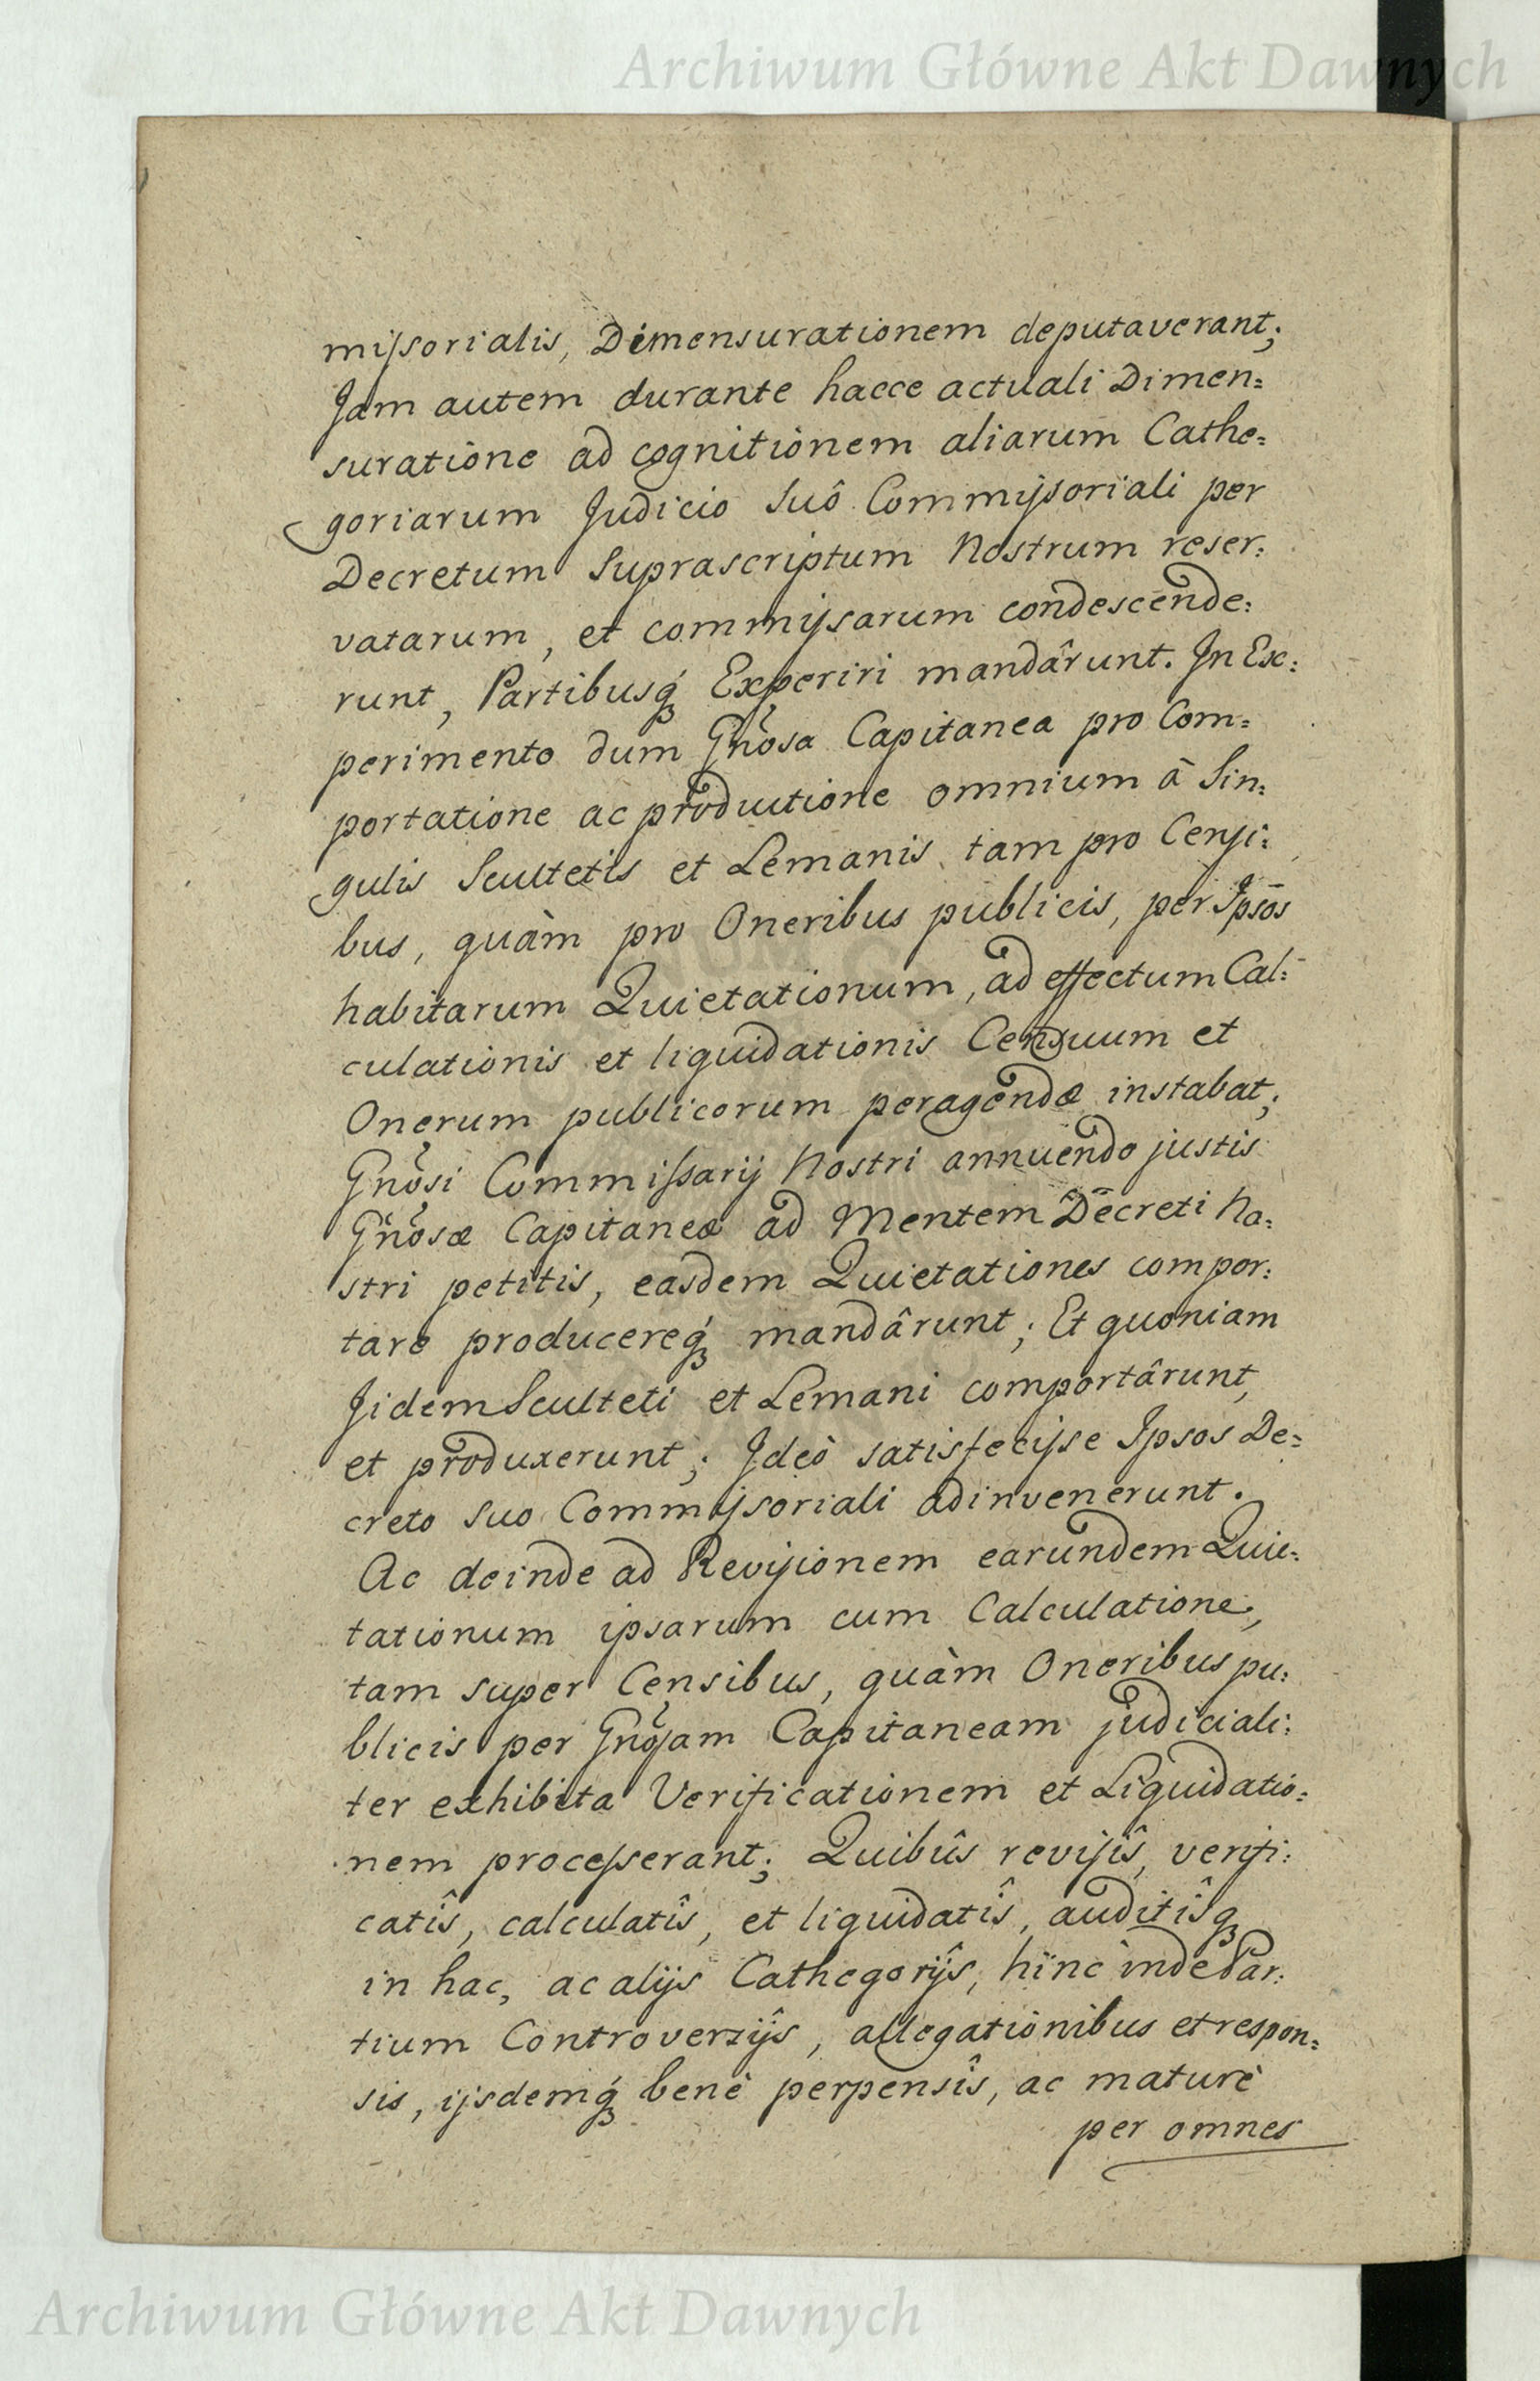 Archiwum Główne Akt Dawnych
missorialis, Dimensurationem deputaverant;
Jam autem durante hacce actuali Dimen=
suratione ad cognitionem aliarum Cathe=
goriarum Judicio Suô Commissoriali per
Decretum Suprascriptum Nostrum reser=
vatarum, et commissarum condescende=
runt, Partibusq́ Experiri mandârunt. In Ex=
perimento dum Gnosa Capitanea pro Com=
portatione ac productione omnium â Sin=
gulis Scultetis et Lemanis tam pro Censi=
bus, quàm pro Oneribus publicis, per Ipsos
habitarum Quietationum, ad effectum Cal=
culationis et liquidationis Censuum et
Onerum publicorum peragendæ instabat;
Gnosi Commissarij Nostri annuendo justis
Gnosæ Capitaneæ ad Mentem Decreti No=
stri petitis, easdem Quietationes compor=
tare producereq́ mandârunt; Et quoniam
Jidem Sculteti et Lemani comportârunt,
et produxerunt; Ideò satisfecisse Ipsos De=
creto suo Commissoriali adinvenerunt.
Ac deinde ad Revisionem earundem Quie=
tationum ipsarum cum Calculatione,
tam super Censibus, quàm Oneribus pu=
blicis per Gnosam Capitaneam judiciali=
ter exhibita Verificationem et Liquidatio=
nem processerant; Quibûs revisîs, verifi=
catîs, calculatîs, et liquidatîs, auditîsq
in hac, ac alijs Cathegorijs, hinc inde Par=
tium Controversijs, allegationibus et respon=
sis, ijsdemq́ benè perpensîs, ac maturè
per omnes
Archiwum Główne Akt Dawnych